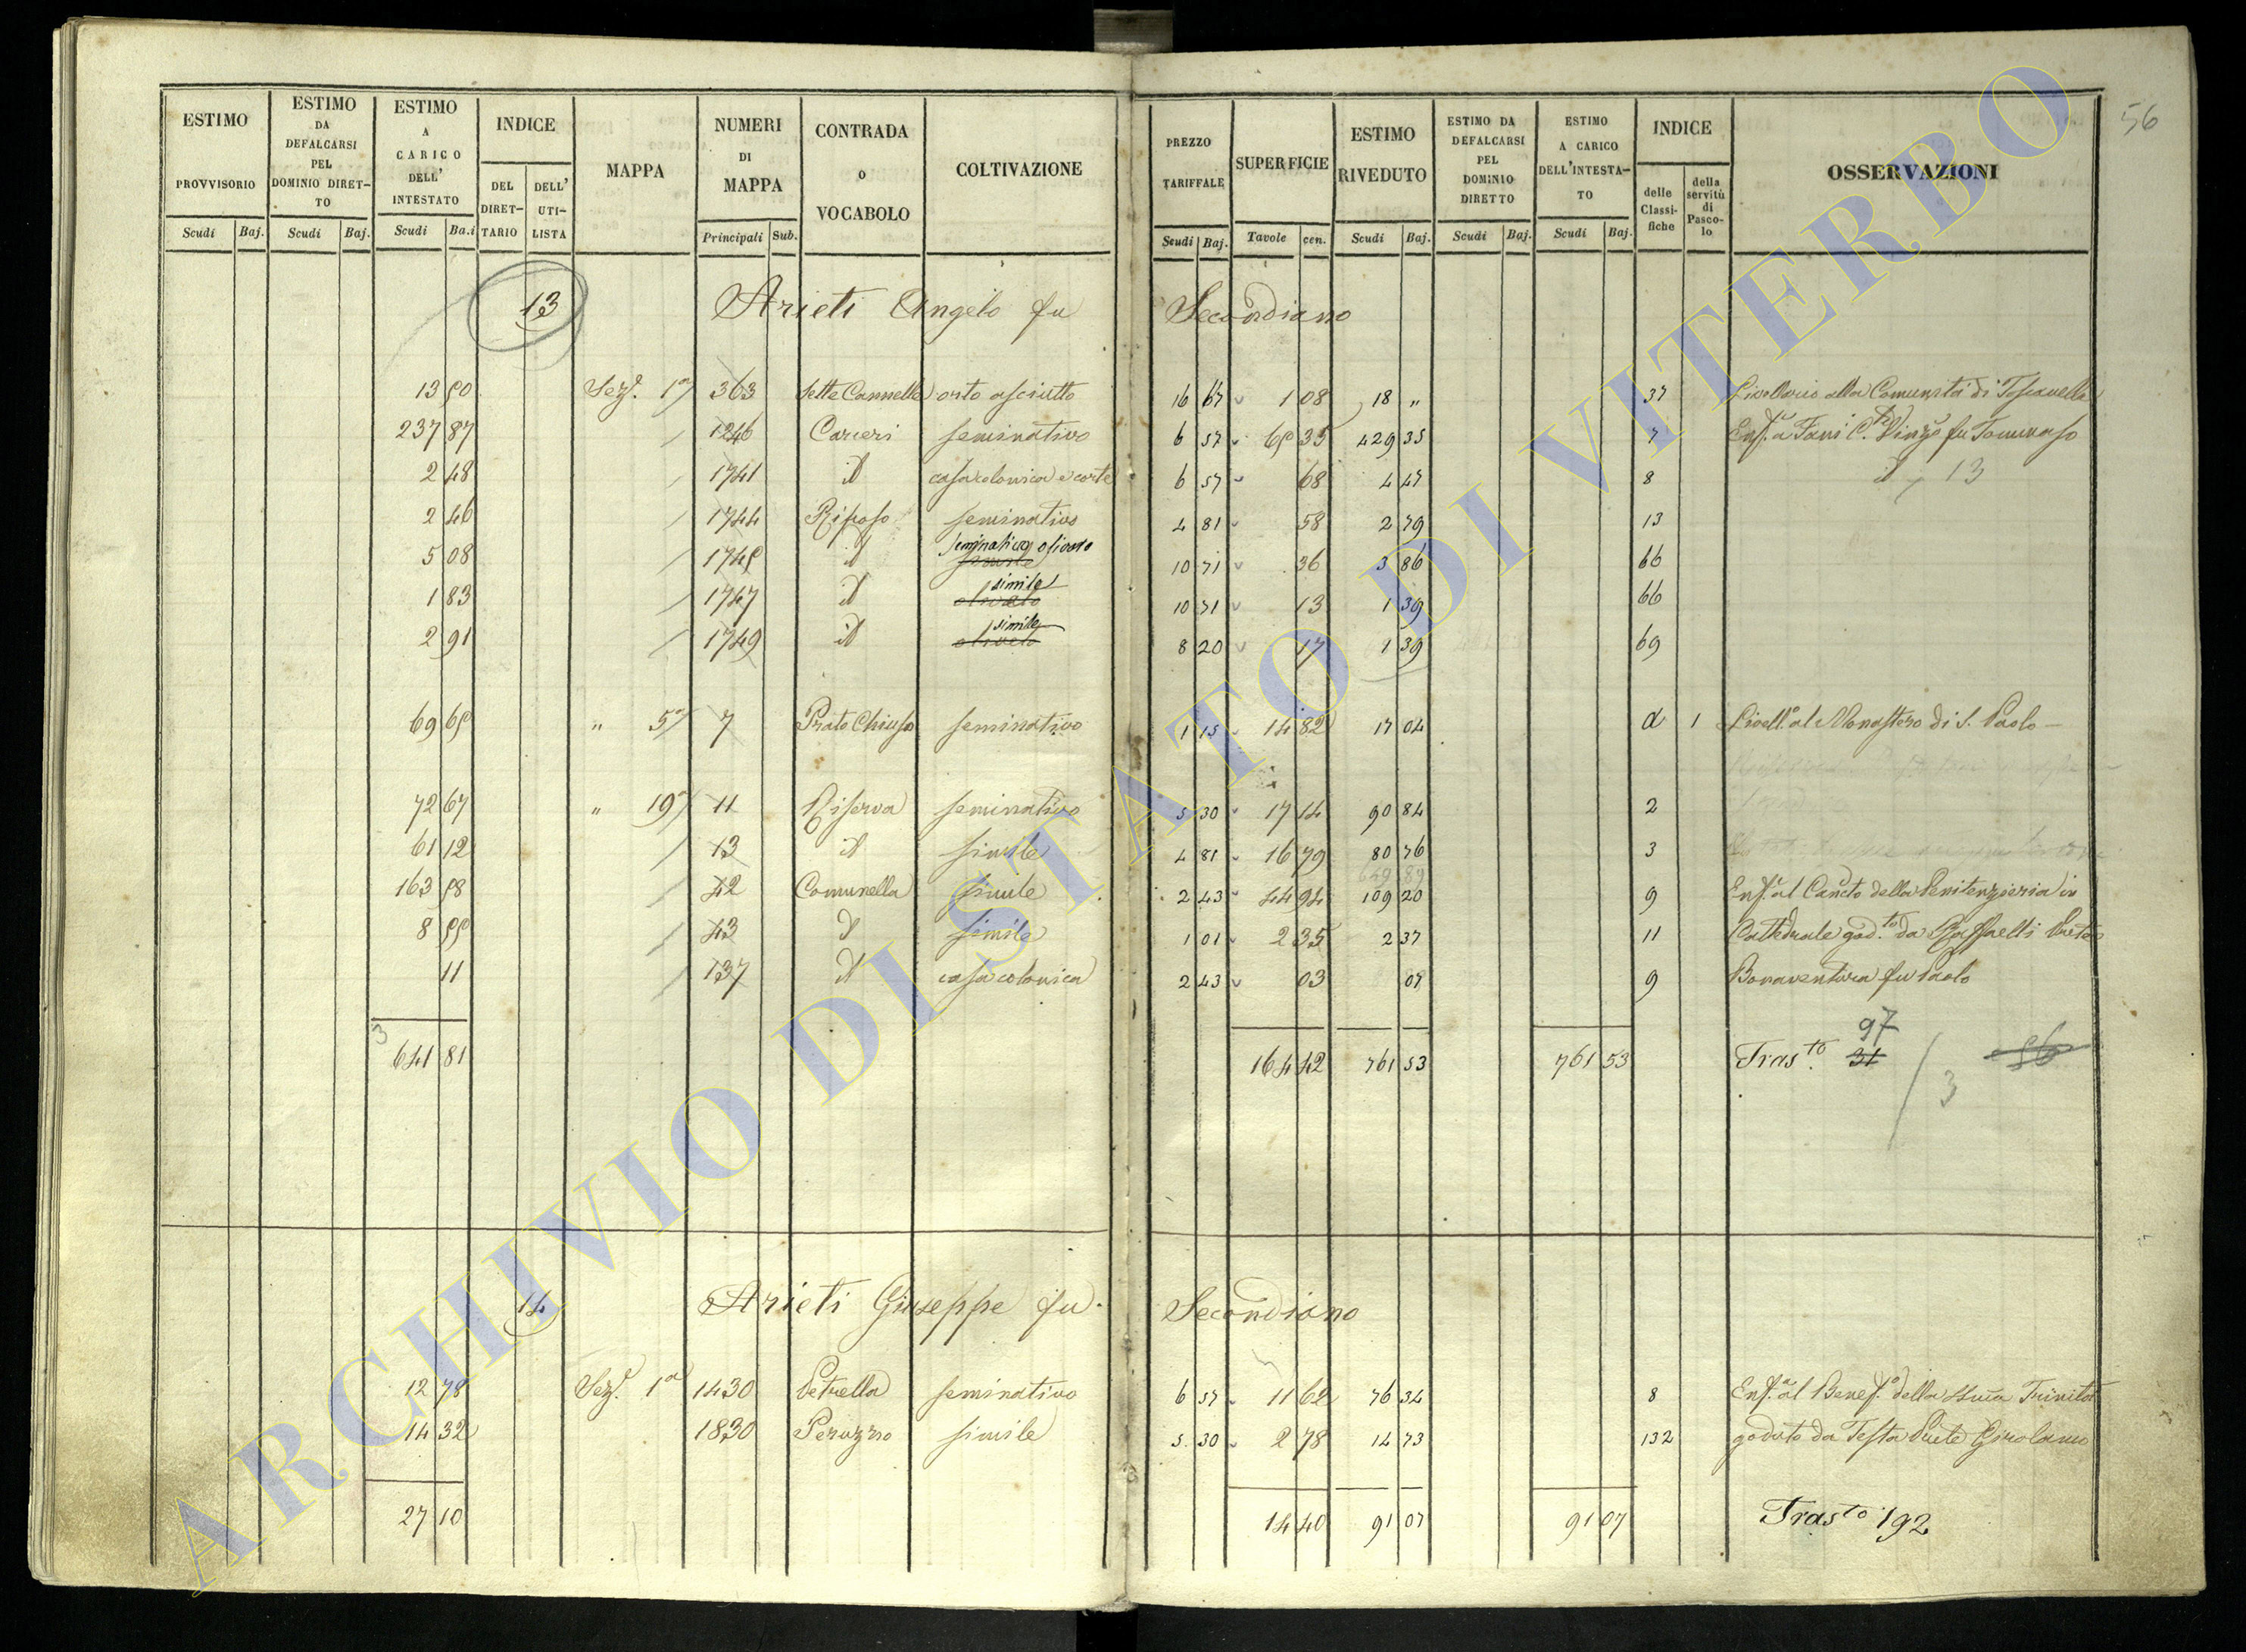 56
ESTIMO PROVVISORIO Scudi Baj.
ESTIMO DA DEFALCARSI PEL DOMINIO DIRET-TO Scudi Baj.
ESTIMO A CARICO DELL' INTESTATO Scudi Ba.i
INDICE DEL DIRET-TARIO DELL' UTI-LISTA
MAPPA
NUMERI DI MAPPA Principali Sub.
CONTRADA o VOCABOLO
COLTIVAZIONE
PREZZO TARIFFALE Scudi Baj.
SUPERFICIE Tavole cen.
ESTIMO RIVEDUTO Scudi Baj.
ESTIMO DA DEFALCARSI PEL DOMINIO DIRETTO Scudi Baj.
ESTIMO A CARICO DELL'INTESTA-TO Scudi Baj.
INDICE delle Classi-fiche della servitù di Pasco-lo
OSSERVAZIONI
13 Arieti Angelo fu Secondiano
13 90 Sez.e 1a 363 Sette Cannelle orto asciutto 16 67 1 08 18 „ 37 Livellario alla Comunità di Toscanella
237 87 1246 Carceri seminativo 6 57 65 35 429 35 7 Enf.a a Fani C.te Vinz.o fu Tommaso
2 48 1741 id casa colonica e corte 6 57 68 4 47 8 id 13
2 46 1744 Riposo seminativo 4 81 58 2 79 13
5 08 1745 id seminativo olivato simile 10 71 36 3 86 66
1 83 1747 id simile olivato 10 71 13 1 39 66
2 91 1749 id simile olivato 8 20 17 1 39 69
69 65 „ 5a 7 Prato Chiuso seminativo 1 15 14 82 17 04 d 1 Livell.o al Monastero di S. Paolo
72 67 „ 19a 11 Riserva seminativo 5 30 17 14 90 84 2
61 12 13 id simile 4 81 16 79 80 76 3
649 89
163 58 42 Comunella simile 2 43 44 94 109 20 9 Enf.a al Can.cto della Penitenzieria in
8 55 43 id simile 1 01 2 35 2 37 11 Cattedrale god.to da Raffaelli Prete
11 137 id casa colonica 2 43 03 07 9 Bonaventura fu Paolo
3 641 81 164 42 761 53 761 53 Tras.to 31 97 / 3 56
14 Arieti Giuseppe fu Secondiano
12 78 Sez.e 1a 1430 Petrella seminativo 6 57 11 62 76 34 8 Enf.a al Benef.o della SSma Trinità
14 32 1830 Peruzzo simile 5 30 2 78 14 73 132 goduto da Testa Prete Girolamo
27 10 14 40 91 07 91 07 Tras.to 192
ARCHIVIO DI STATO DI VITERBO